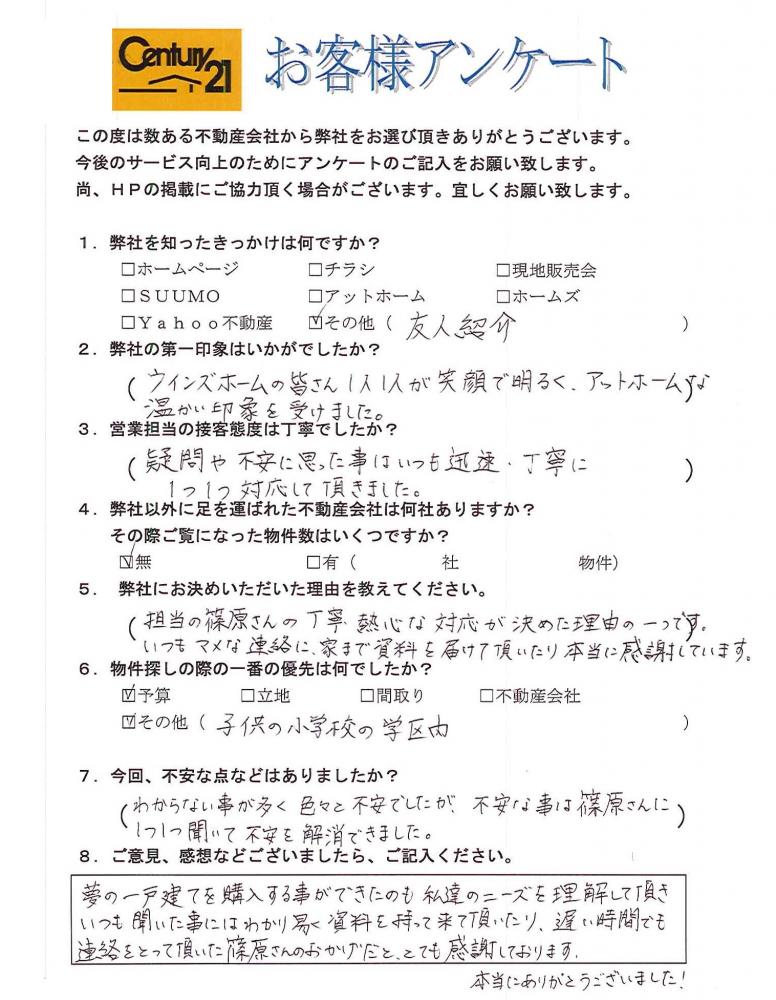 Century 21
お客様アンケート
この度は数ある不動産会社から弊社をお選び頂きありがとうございます。
今後のサービス向上のためにアンケートのご記入をお願い致します。
尚、HPの掲載にご協力頂く場合がございます。宜しくお願い致します。
1．弊社を知ったきっかけは何ですか？
□ホームページ □チラシ □現地販売会
□SUUMO □アットホーム □ホームズ
□Yahoo不動産 ☑その他（ 友人紹介 ）
2．弊社の第一印象はいかがでしたか？
（ ウインズホームの皆さん1人1人が笑顔で明るく、アットホームな ）
温かい印象を受けました。
3．営業担当の接客態度は丁寧でしたか？
（ 疑問や不安に思った事はいつも迅速・丁寧に ）
1つ1つ対応して頂きました。
4．弊社以外に足を運ばれた不動産会社は何社ありますか？
その際ご覧になった物件数はいくつですか？
☑無 □有（ 社 物件）
5． 弊社にお決めいただいた理由を教えてください。
（ 担当の篠原さんの丁寧、熱心な対応が決めた理由の一つです。 ）
いつもマメな連絡に、家まで資料を届けて頂いたり本当に感謝しています。
6．物件探しの際の一番の優先は何でしたか？
☑予算 □立地 □間取り □不動産会社
☑その他（ 子供の小学校の学区内 ）
7．今回、不安な点などはありましたか？
（ わからない事が多く色々と不安でしたが、不安な事は篠原さんに ）
1つ1つ聞いて不安を解消できました。
8．ご意見、感想などございましたら、ご記入ください。
夢の一戸建てを購入する事ができたのも私達のニーズを理解して頂き
いつも聞いた事にはわかり易く資料を持って来て頂いたり、遅い時間でも
連絡をとって頂いた篠原さんのおかげだと、とても感謝しております。
本当にありがとうございました！